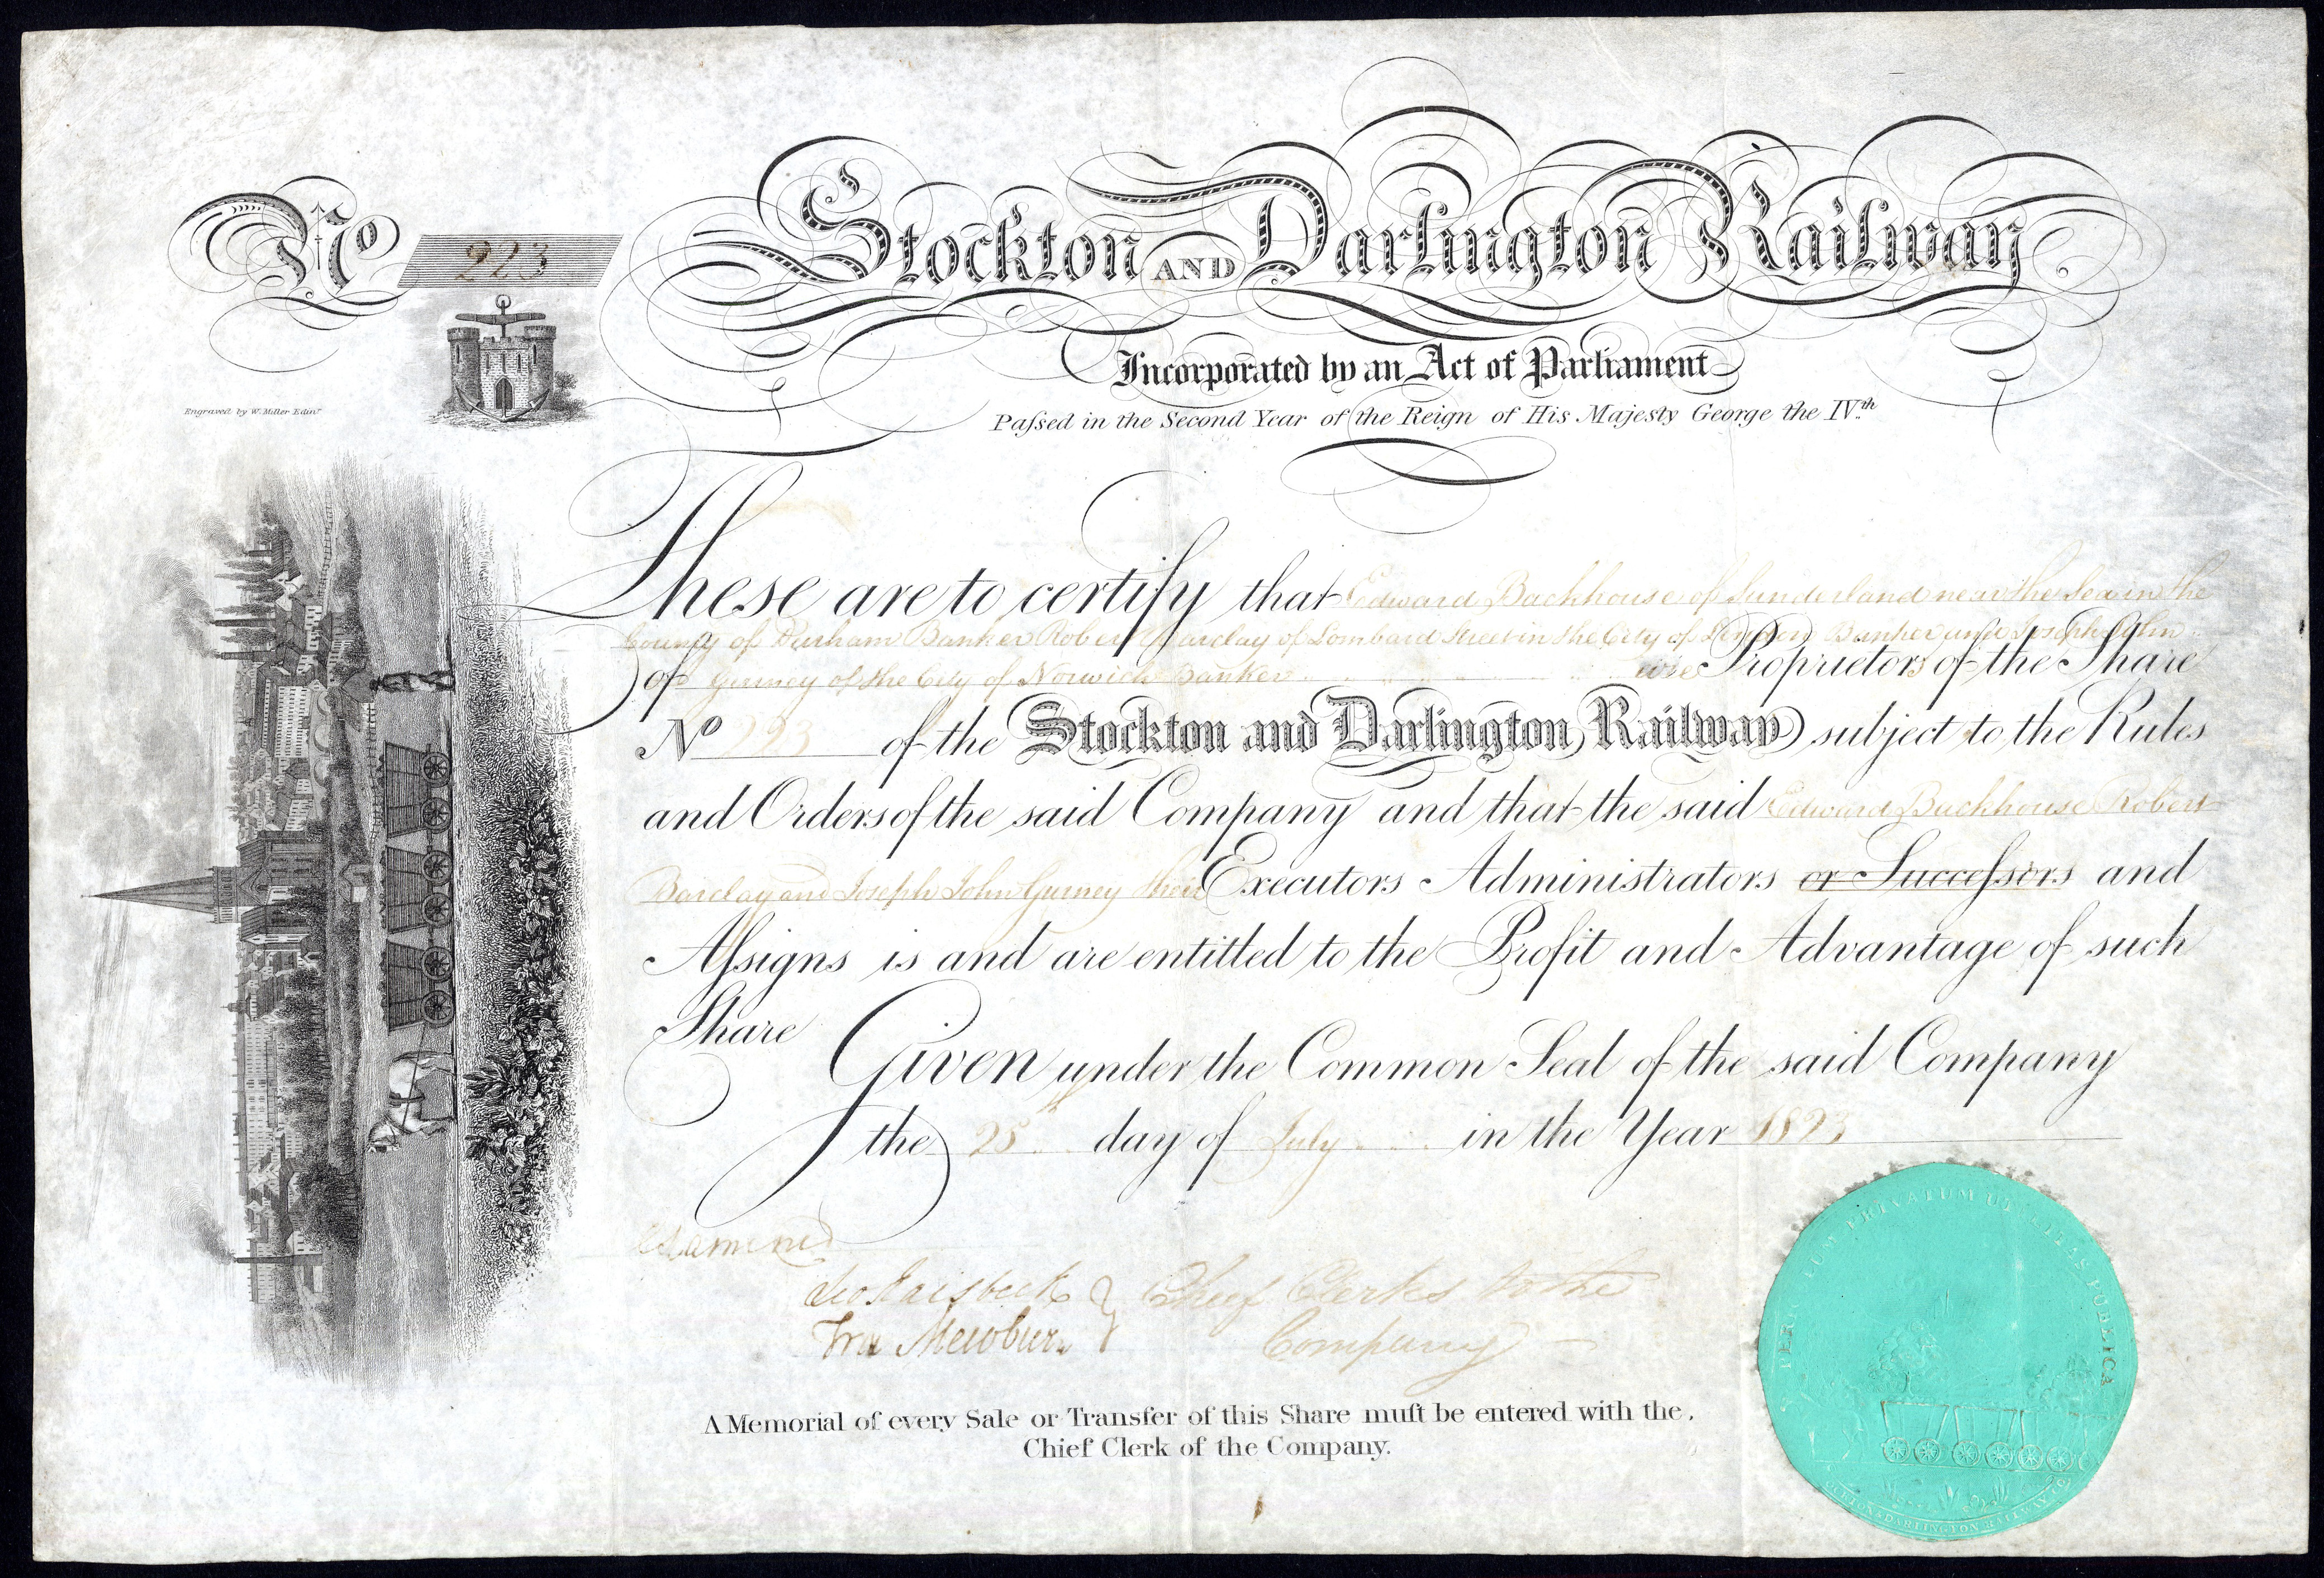 No 223
Stockton AND Darlington Railway
Incorporated by an Act of Parliament
Paſsed in the Second Year of the Reign of His Majesty George the IV.th
Engraved by W. Miller Edinr
These are to certify that Edward Backhouse of Sunderland near the Sea in the
County of Durham Banker Robert Barclay of Lombard Street in the City of London Banker and Joseph John
of Gurney of the City of Norwich Banker are Proprietors of the Share
No 223 of the Stockton and Darlington Railway subject to the Rules
and Orders of the said Company and that the said Edward Backhouse Robert
Barclay and Joseph John Gurney their Executors Administrators or Succeſsors and
Aſsigns is and are entitled to the Profit and Advantage of such
Share
Given under the Common Seal of the said Company
the 25 day of July in the Year 1823
Examined
Leo Raisbeck } Chief Clerks to the
Fra Mewburn } Company
A Memorial of every Sale or Transfer of this Share muſt be entered with the
Chief Clerk of the Company.
PRIVATUM UTILITAS PUBLICA
STOCKTON & DARLINGTON RAILWAY CO